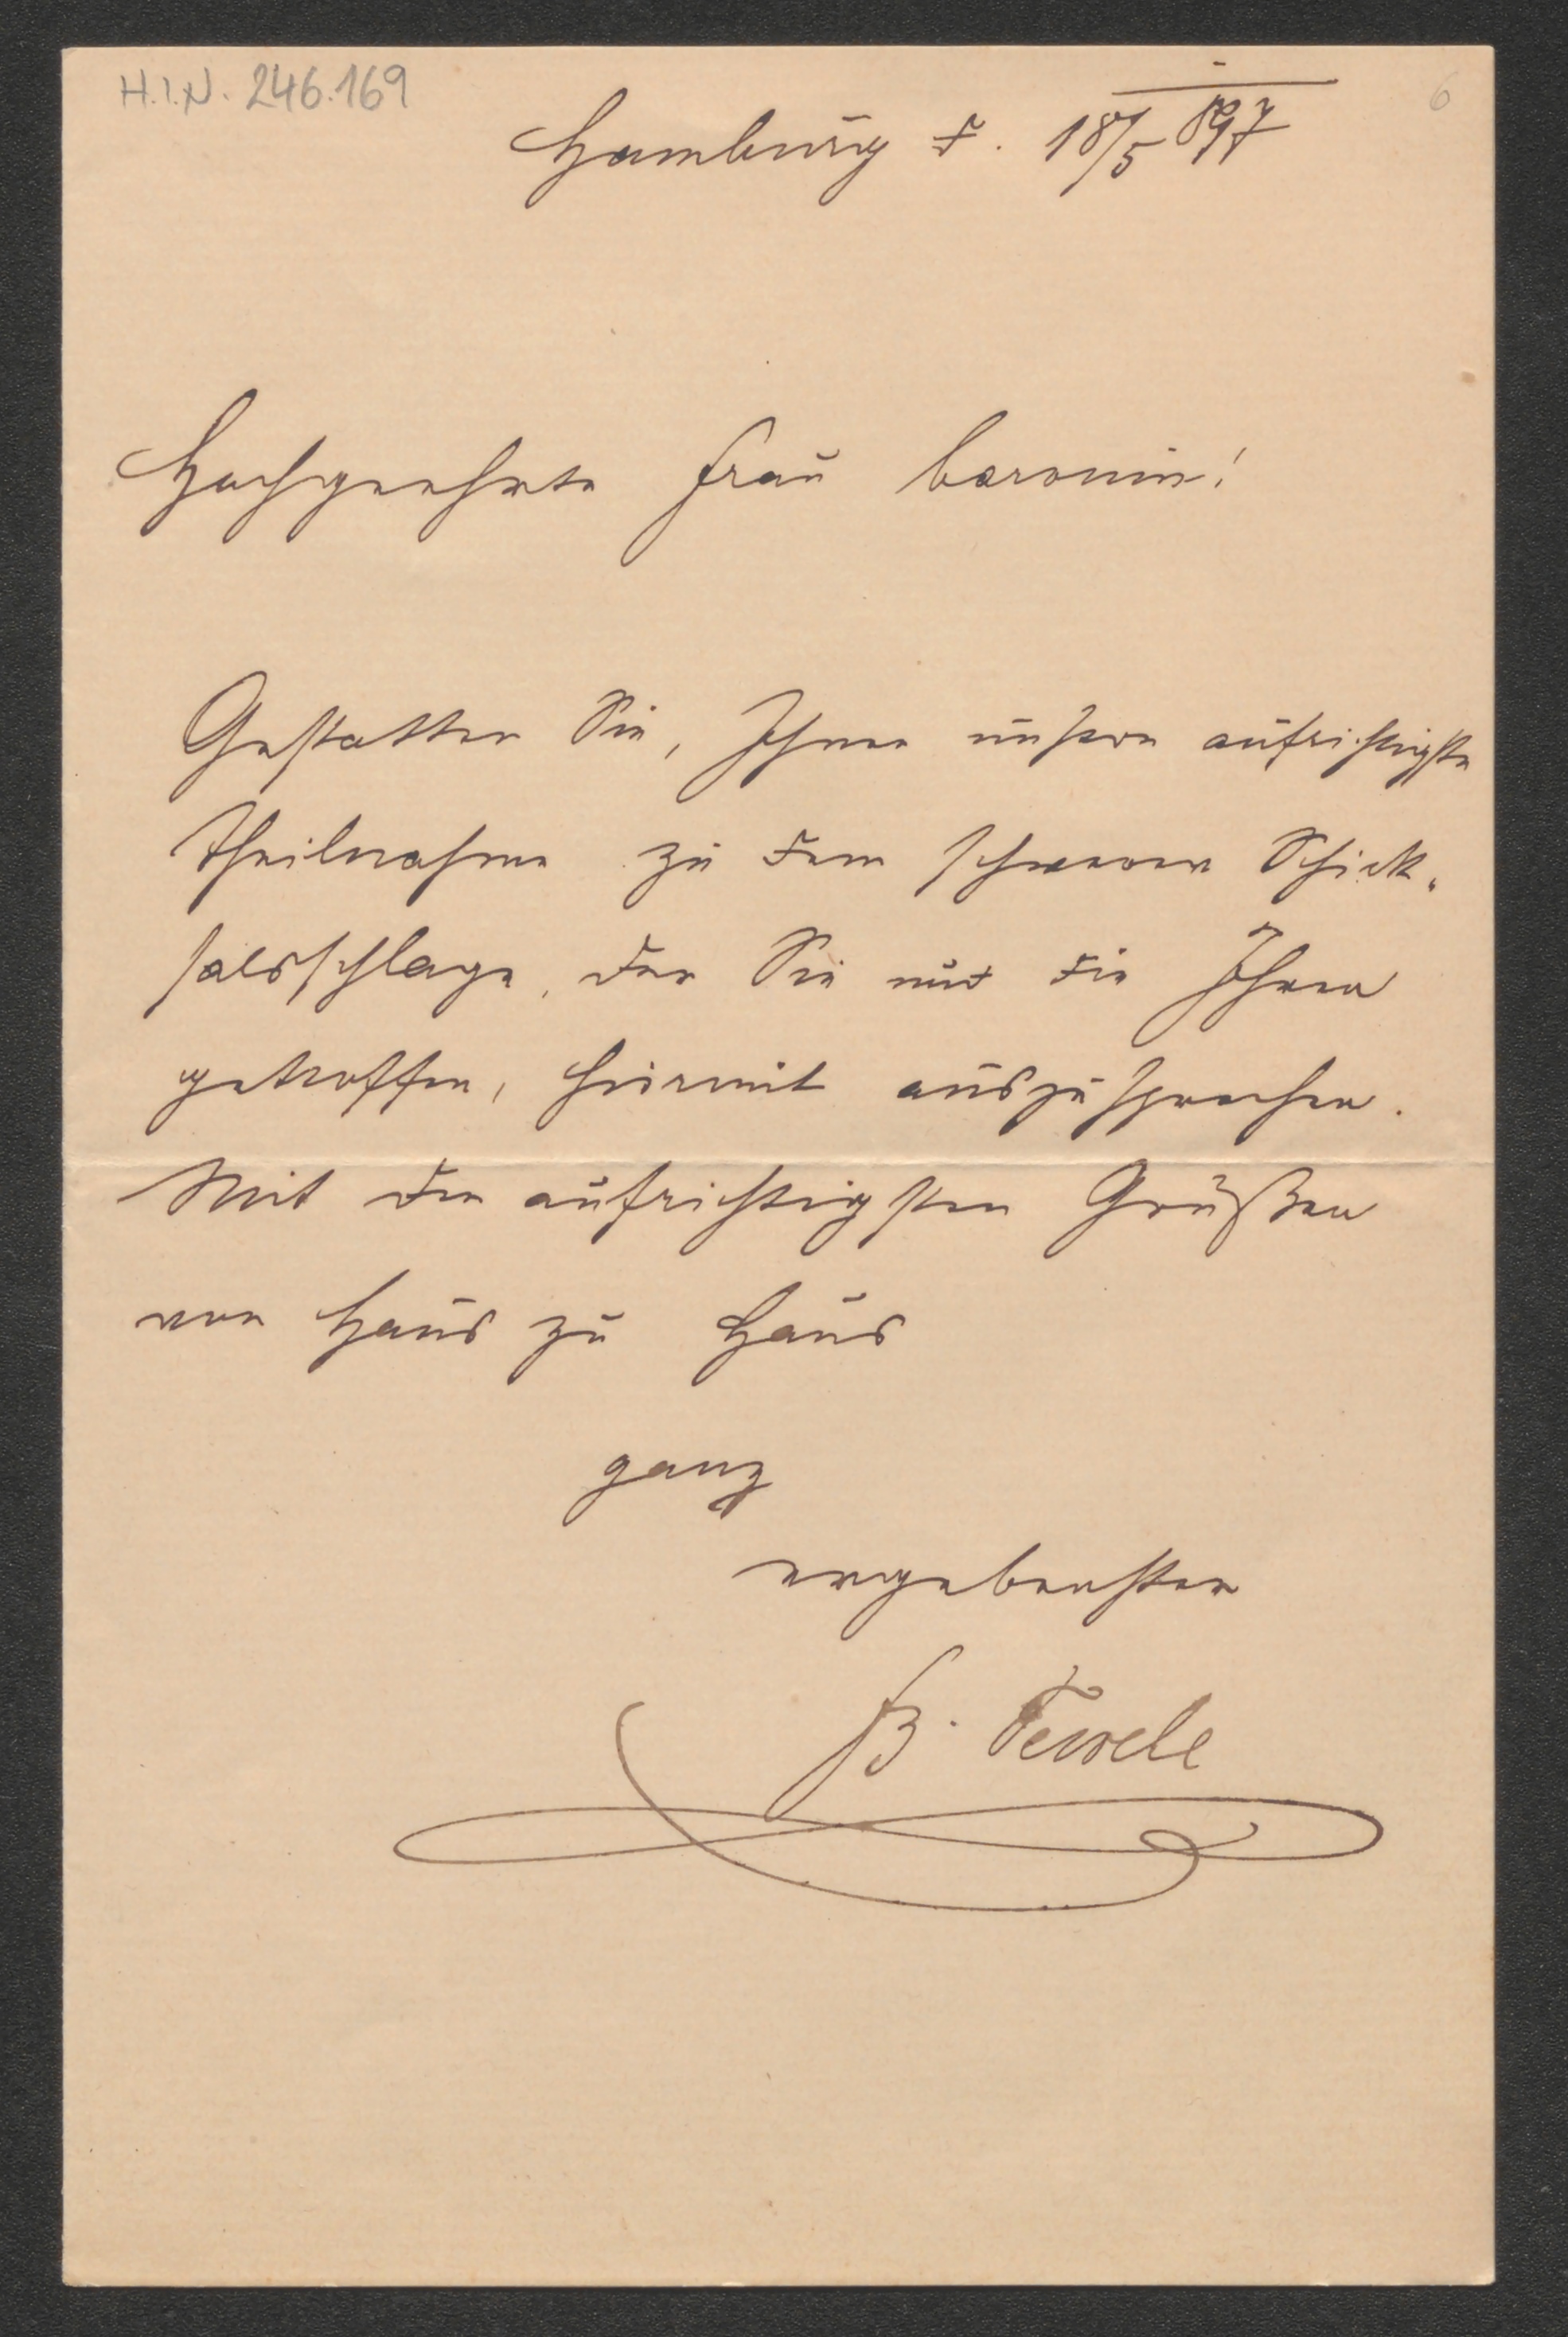 H.I.N. 246.169
6
Hamburg d. 18/5 897
Hochgeehrte Frau Baronin!
Gestatten Sie, Ihnen unsere aufrichtigste
Theilnahme zu dem schweren Schick-
salsschlage, der Sie und die Ihren
getroffen, hiermit auszusprechen.
Mit den aufrichtigsten Grüßen
von Haus zu Haus
ganz
ergebenster
F. Tewele